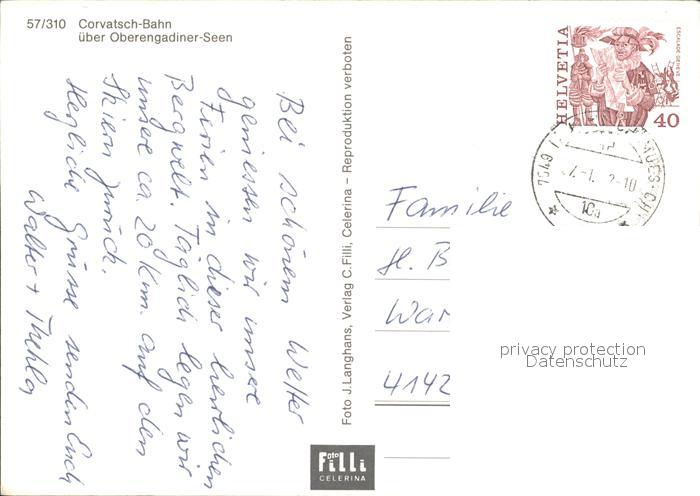 57/310 Corvatsch-Bahn
über Oberengadiner-Seen
Bei schönem Wetter
geniessen wir unsere
Ferien in dieser herrlichen
Bergwelt. Täglich legen wir
unsere ca. 20 Km. auf den
Skiern zurück.
Herzliche Grüsse senden Euch
Walter + Thekla
Foto J. Langhans, Verlag C. Filli, Celerina – Reproduktion verboten
foto
Filli
CELERINA
HELVETIA
ESCALADE GENÈVE
40
7549
10
Familie
H. B
War
4142
privacy protection
Datenschutz